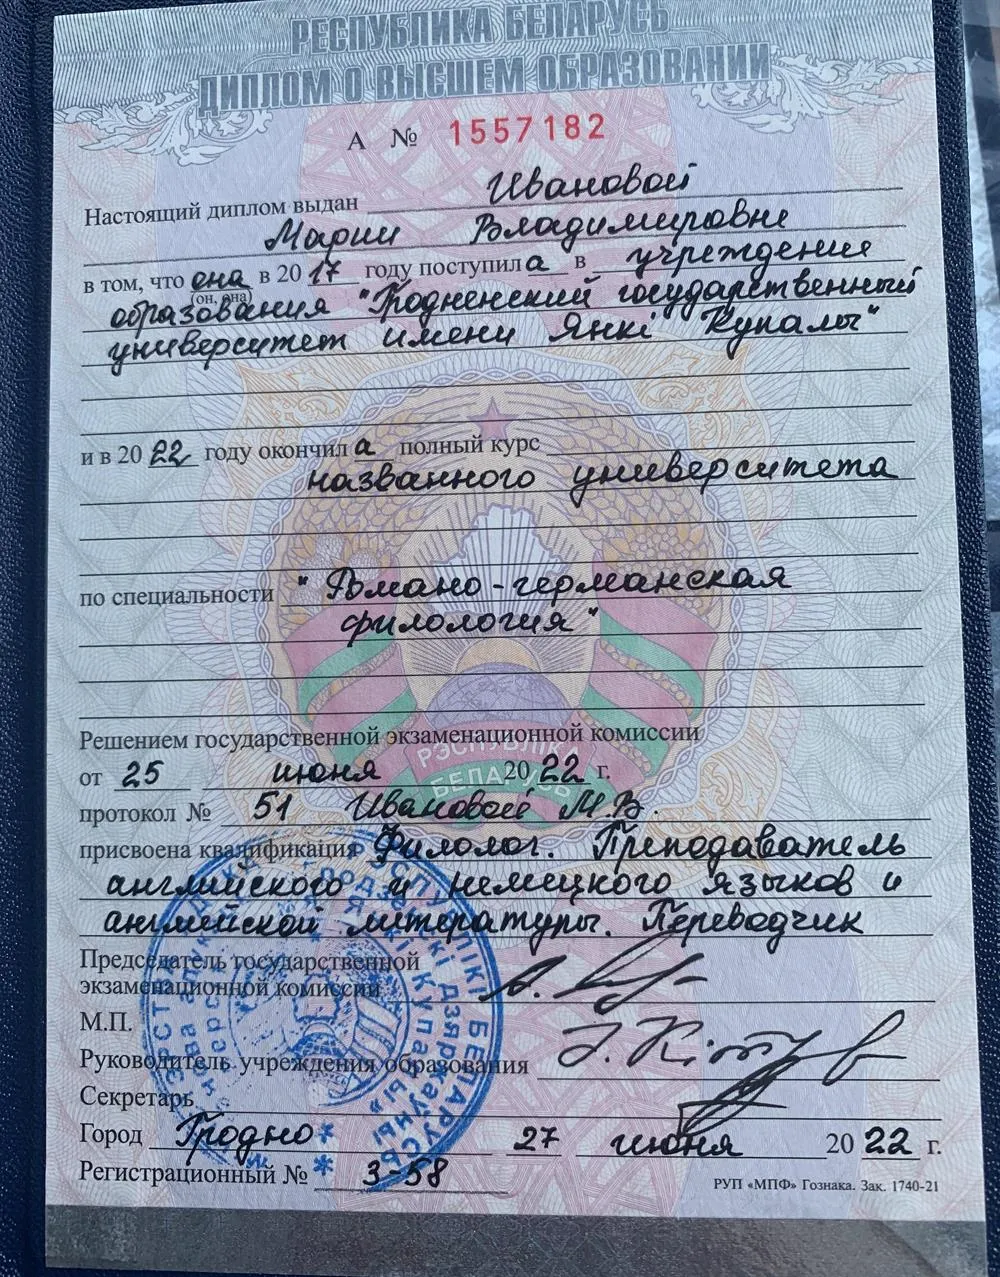 РЕСПУБЛИКА БЕЛАРУСЬ
ДИПЛОМ О ВЫСШЕМ ОБРАЗОВАНИИ
А № 1557182
Настоящий диплом выдан Ивановой
Марии Владимировне
в том, что она в 2017 году поступила в учреждение
(он, она)
образования "Гродненский государственный
университет имени Янкі Купалы"
и в 2022 году окончила полный курс
названного университета
по специальности "Романо-германская
филология"
Решением государственной экзаменационной комиссии
РЭСПУБЛІКА
БЕЛАРУСЬ
от 25 июня 2022 г.
протокол № 51 Ивановой М.В.
присвоена квалификация Филолог. Преподаватель
английского и немецкого языков и
английской литературы. Переводчик
Председатель государственной
экзаменационной комиссии
М.П.
Руководитель учреждения образования
Секретарь
Город Гродно 27 июня 2022 г.
Регистрационный № 3-58
РУП «МПФ» Гознака. Зак. 1740-21